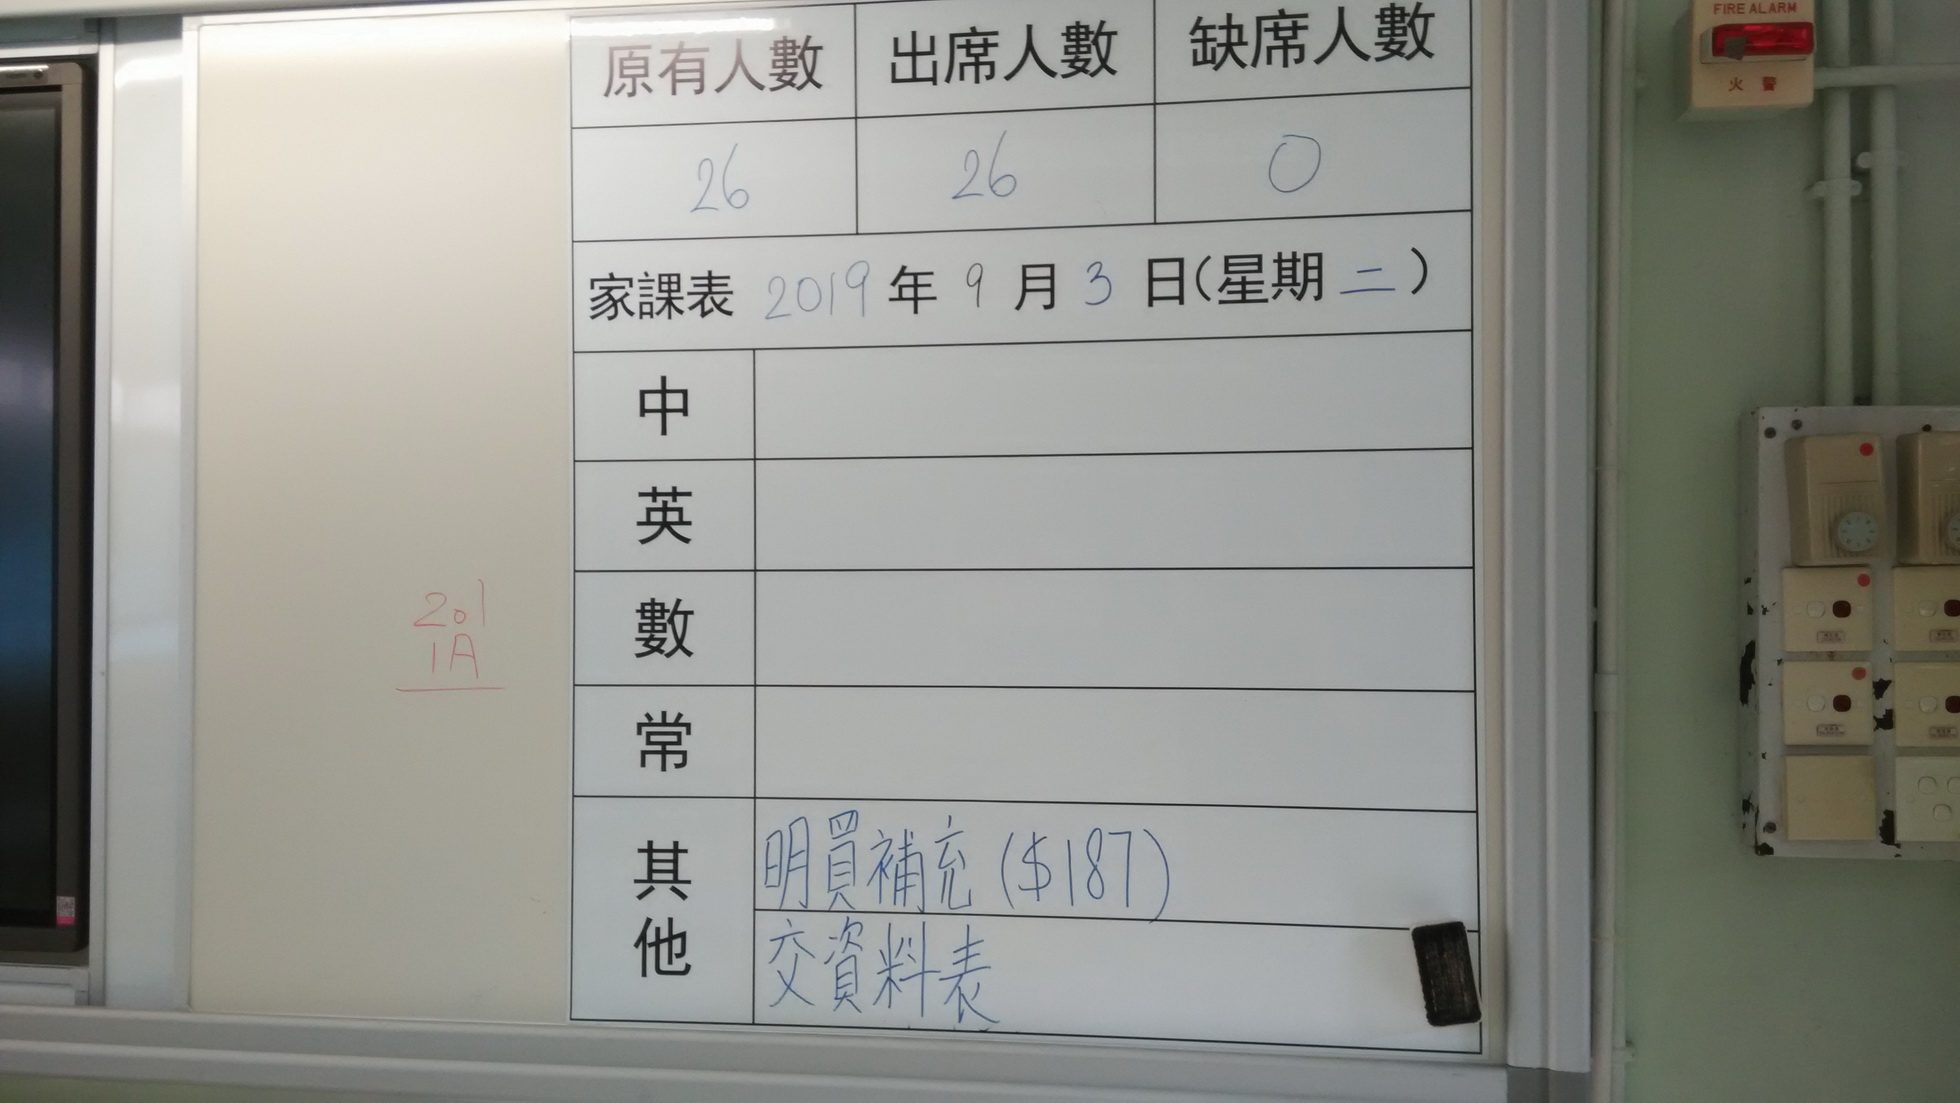 原有人數 出席人數 缺席人數
26 26 0
家課表 2019 年 9 月 3 日(星期 二)
中
英
數
常
其他
明買補充 ($187)
交資料表
201
1A
FIRE ALARM
火警